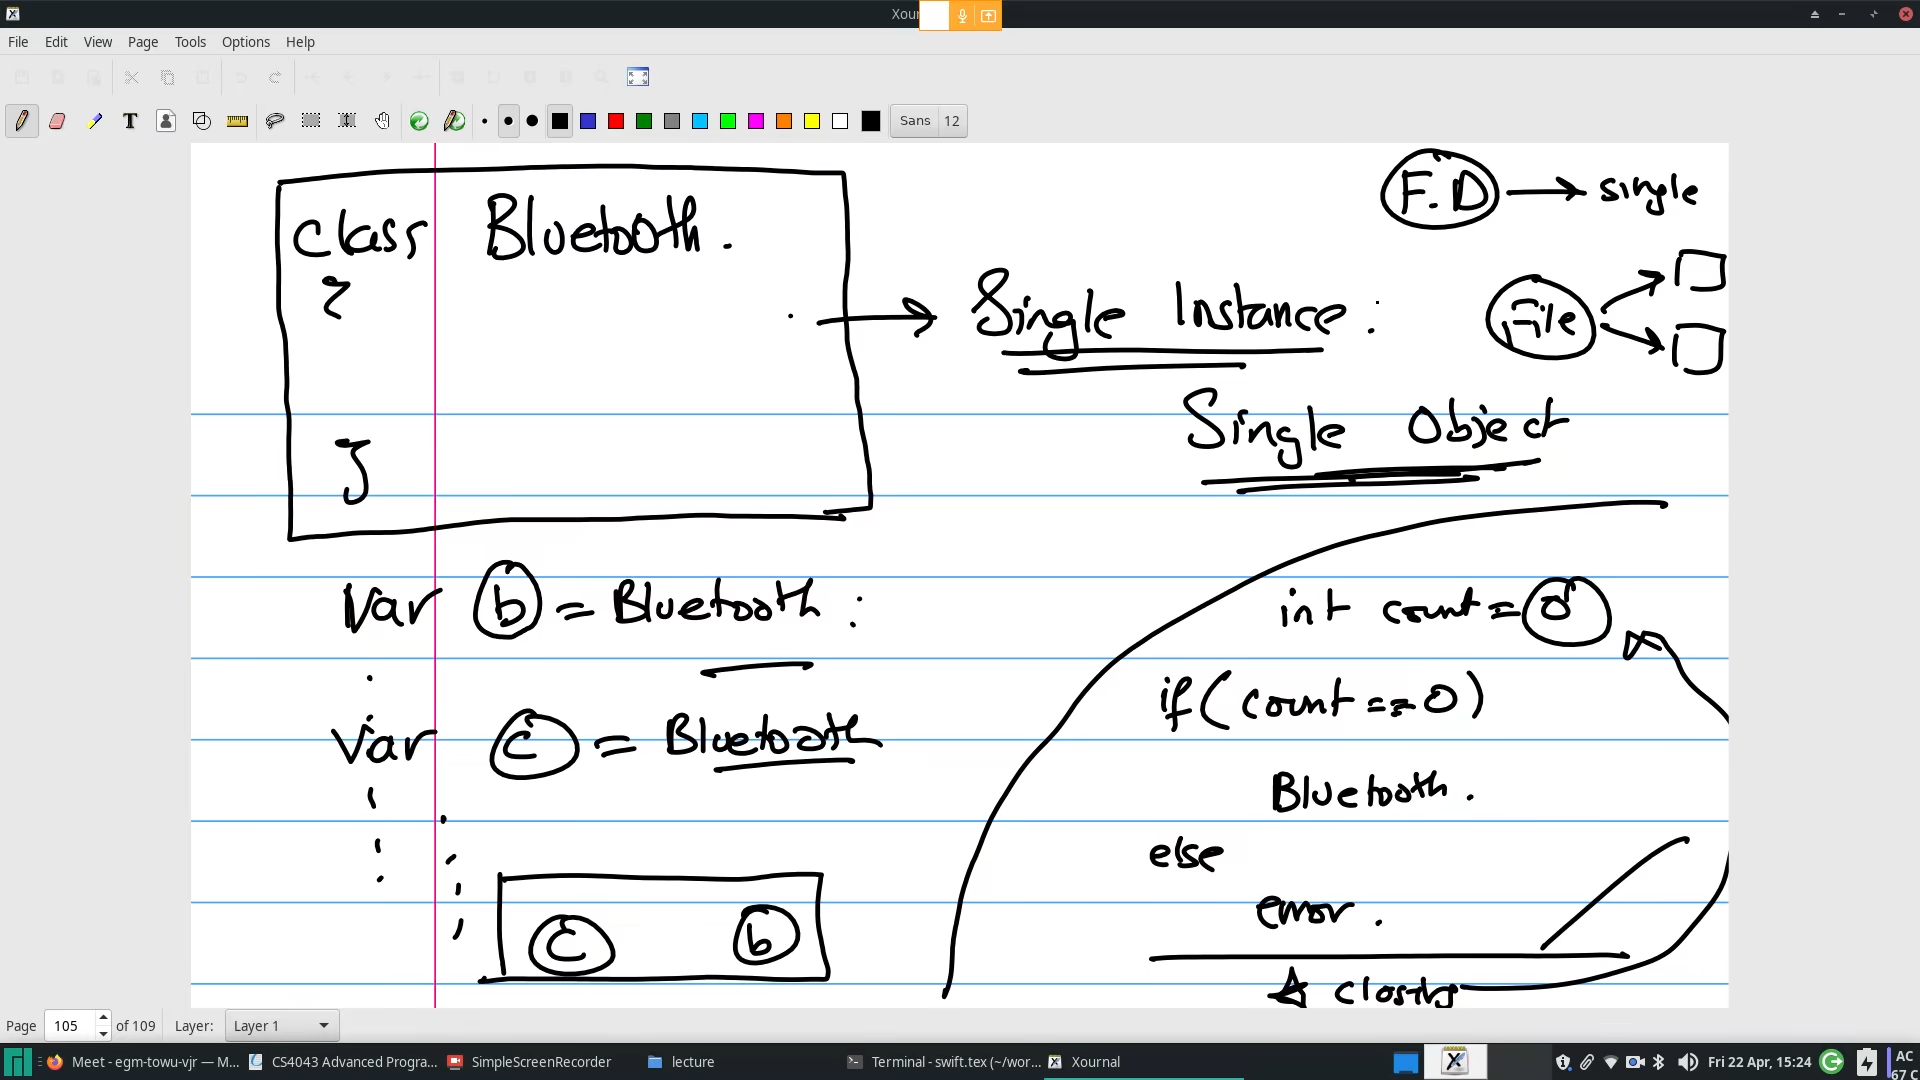 Xour
File Edit View Page Tools Options Help
T Sans 12
class Bluetooth.
{
}
Single Instance:
Single Object
F.D → single
File
Var b = Bluetooth:
Var c = Bluetooth
c b
int count = 0
if (count == 0)
Bluetooth.
else
error.
closing
Page 105 of 109 Layer: Layer 1
Meet - egm-towu-vjr — M... CS4043 Advanced Progra... SimpleScreenRecorder lecture Terminal - swift.tex (~/wor... Xournal Fri 22 Apr, 15:24 AC
67 C